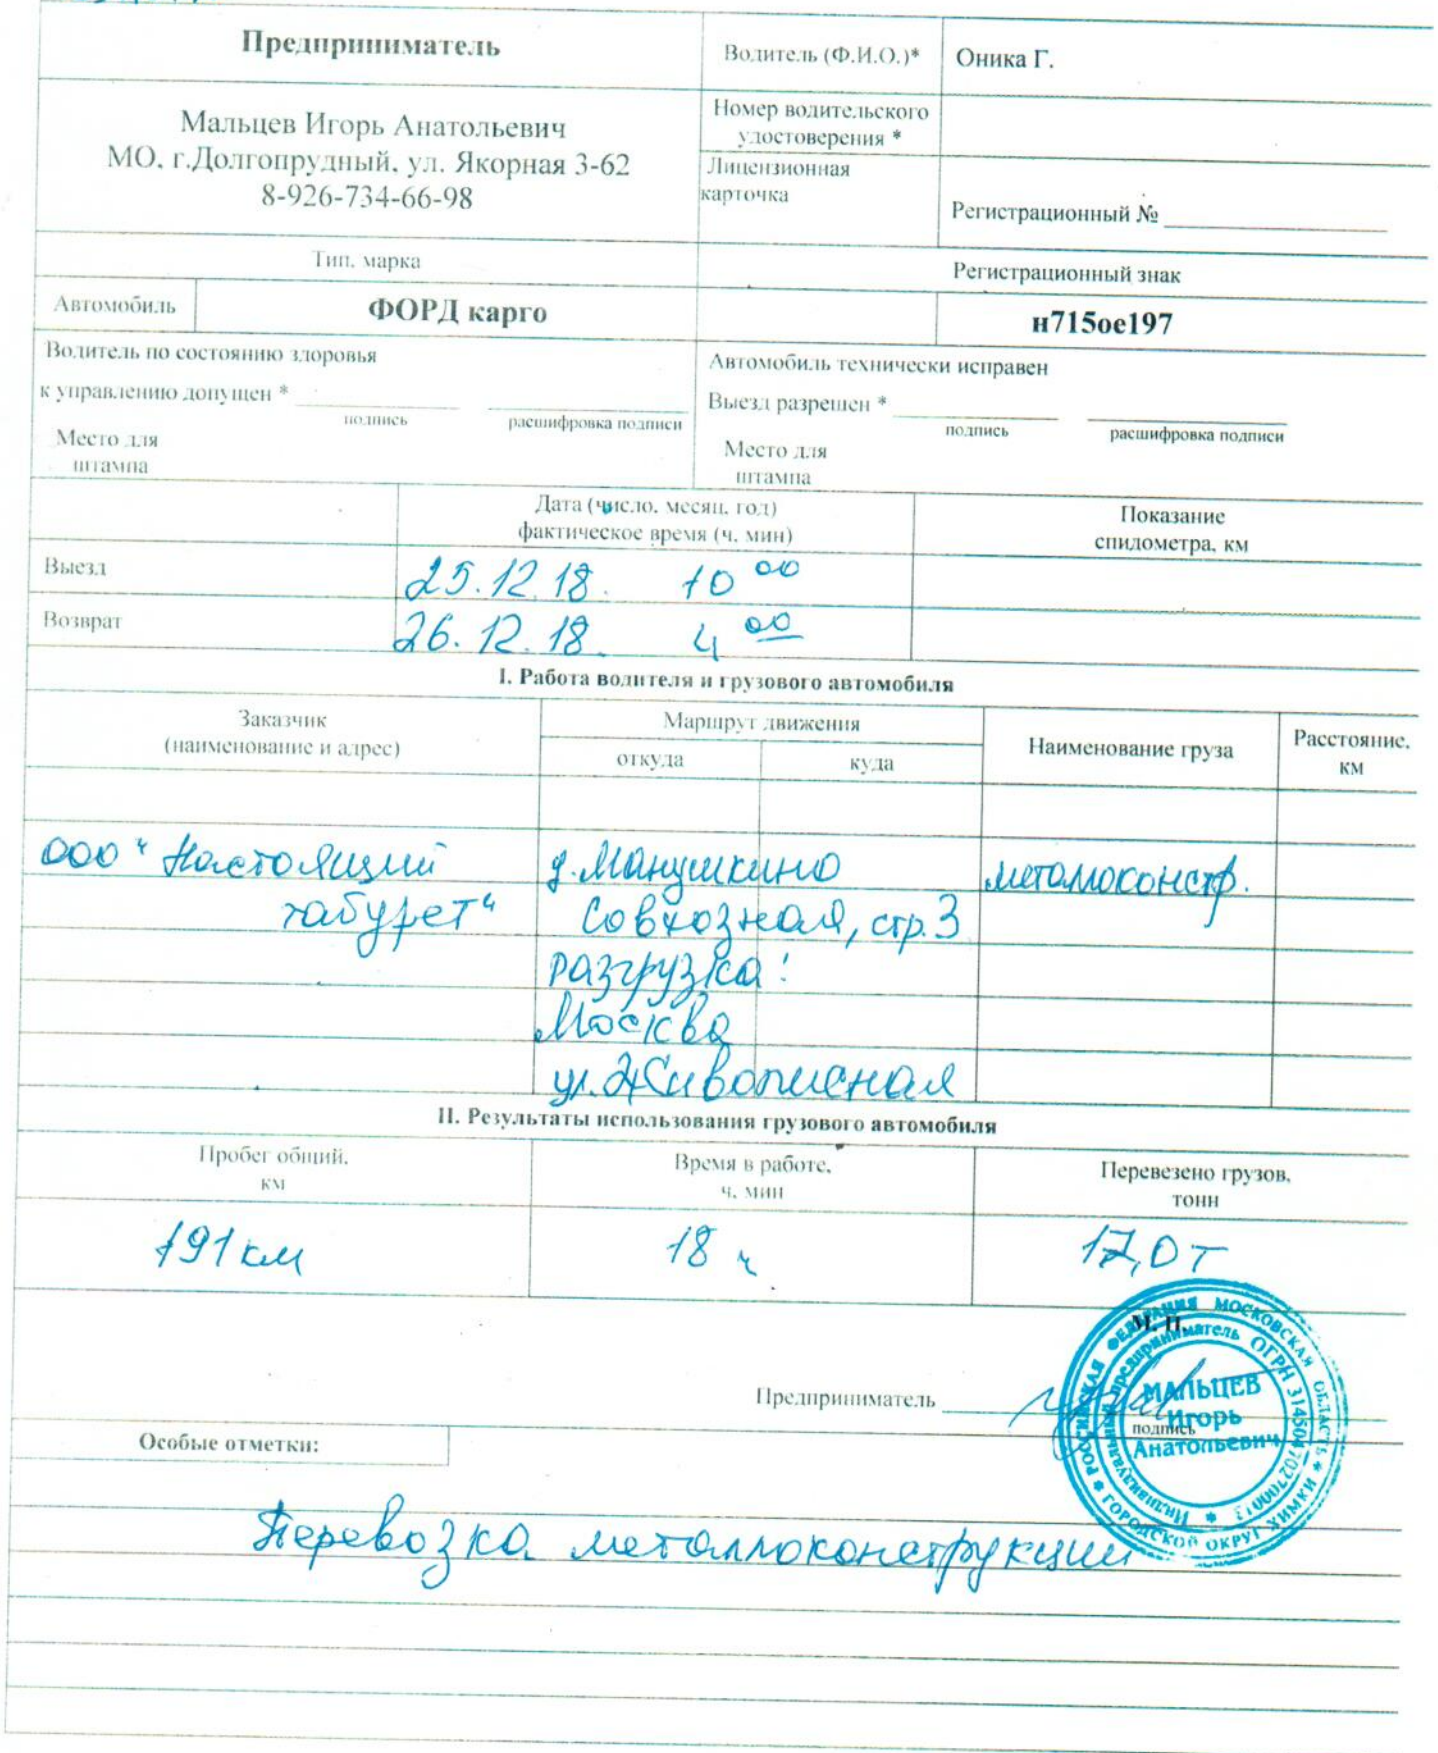 Предприниматель
Водитель (Ф.И.О.)*
Оника Г.
Мальцев Игорь Анатольевич
МО, г.Долгопрудный, ул. Якорная 3-62
8-926-734-66-98
Номер водительского
удостоверения *
Лицензионная
карточка
Регистрационный №
Тип, марка
Регистрационный знак
Автомобиль
ФОРД карго
н715ое197
Водитель по состоянию здоровья
к управлению допущен *
подпись
расшифровка подписи
Место для
штампа
Автомобиль технически исправен
Выезд разрешен *
подпись
расшифровка подписи
Место для
штампа
Дата (число, месяц, год)
фактическое время (ч, мин)
Показание
спидометра, км
Выезд
25.12.18. 10 00
Возврат
26.12.18. 4 00
I. Работа водителя и грузового автомобиля
Заказчик
(наименование и адрес)
Маршрут движения
откуда
куда
Наименование груза
Расстояние,
км
ООО "Настоящий
табурет"
д. Манушкино
Совхозная, стр. 3
разгрузка:
Москва
ул. Живописная
металлоконстр.
II. Результаты использования грузового автомобиля
Пробег общий,
км
Время в работе,
ч, мин
Перевезено грузов,
тонн
191 км
18 ч
17,0 т
М. П.
Предприниматель
подпись
РОССИЙСКАЯ ФЕДЕРАЦИЯ МОСКОВСКАЯ ОБЛАСТЬ * ГОРОДСКОЙ ОКРУГ ХИМКИ *
Индивидуальный предприниматель ОГРН 314504702700013 *
МАЛЬЦЕВ
Игорь
Анатольевич
Особые отметки:
Перевозка металлоконструкции